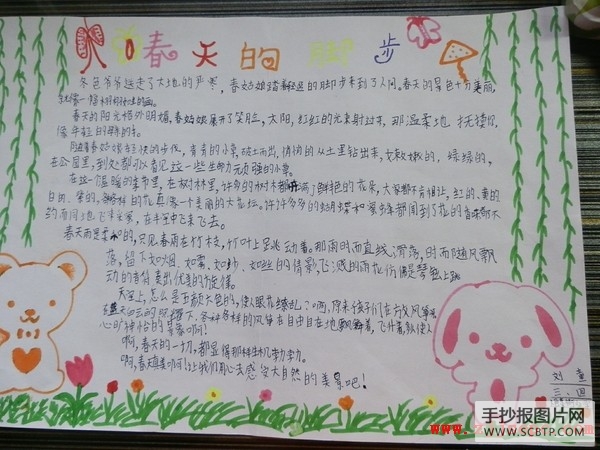 春天的脚步
冬爷爷送走了大地的严寒，春姑娘踏着轻迈的脚步来到了人间。春天的景色十分美丽，
就像一幅
春天的阳光格外明媚。春姑娘展开了笑脸，太阳，红红的光束射过来，那温柔地抚摸你，
像年轻的母亲的手。
随着春姑娘轻快的步伐，青青的小草，破土而出，悄悄的从土里钻出来，嫩嫩的，绿绿的，
在公园里，到处都可以看见这一些生命力顽强的小草。
在这个温暖的季节里，在树林里，许多的树木都开满了鲜艳的花朵，大家都不肯相让，红的、黄的
白的、紫的，的花真像一个美丽的大花坛。许许多多的蝴蝶和蜜蜂都闻到了花的香味都不
约而同地飞来采蜜，在林中飞来飞去。
春天雨是柔的，只见春雨在竹枝，竹叶上跳动着。那雨时而直线滑落，时而随风飘
落，留下如烟、如雾、如纱、如丝的倩影，飞溅的雨花仿佛是琴弦上跳
动的音符，奏出优美的旋律。
天空上，怎么是五颜六色的，使人眼花缭乱？啊，原来孩子们在放风筝
在蓝天白云的下，各种各样的风筝在自由自在地飘舞着，飞什着，使人
心旷神怡的景象啊！
啊，春天的一切，都显得那样生机勃勃。
啊，春天真美啊！让我们用心去感受大自然的美景吧！
刘童
三、四
手抄报图片网
WWW.SCBTP.COM